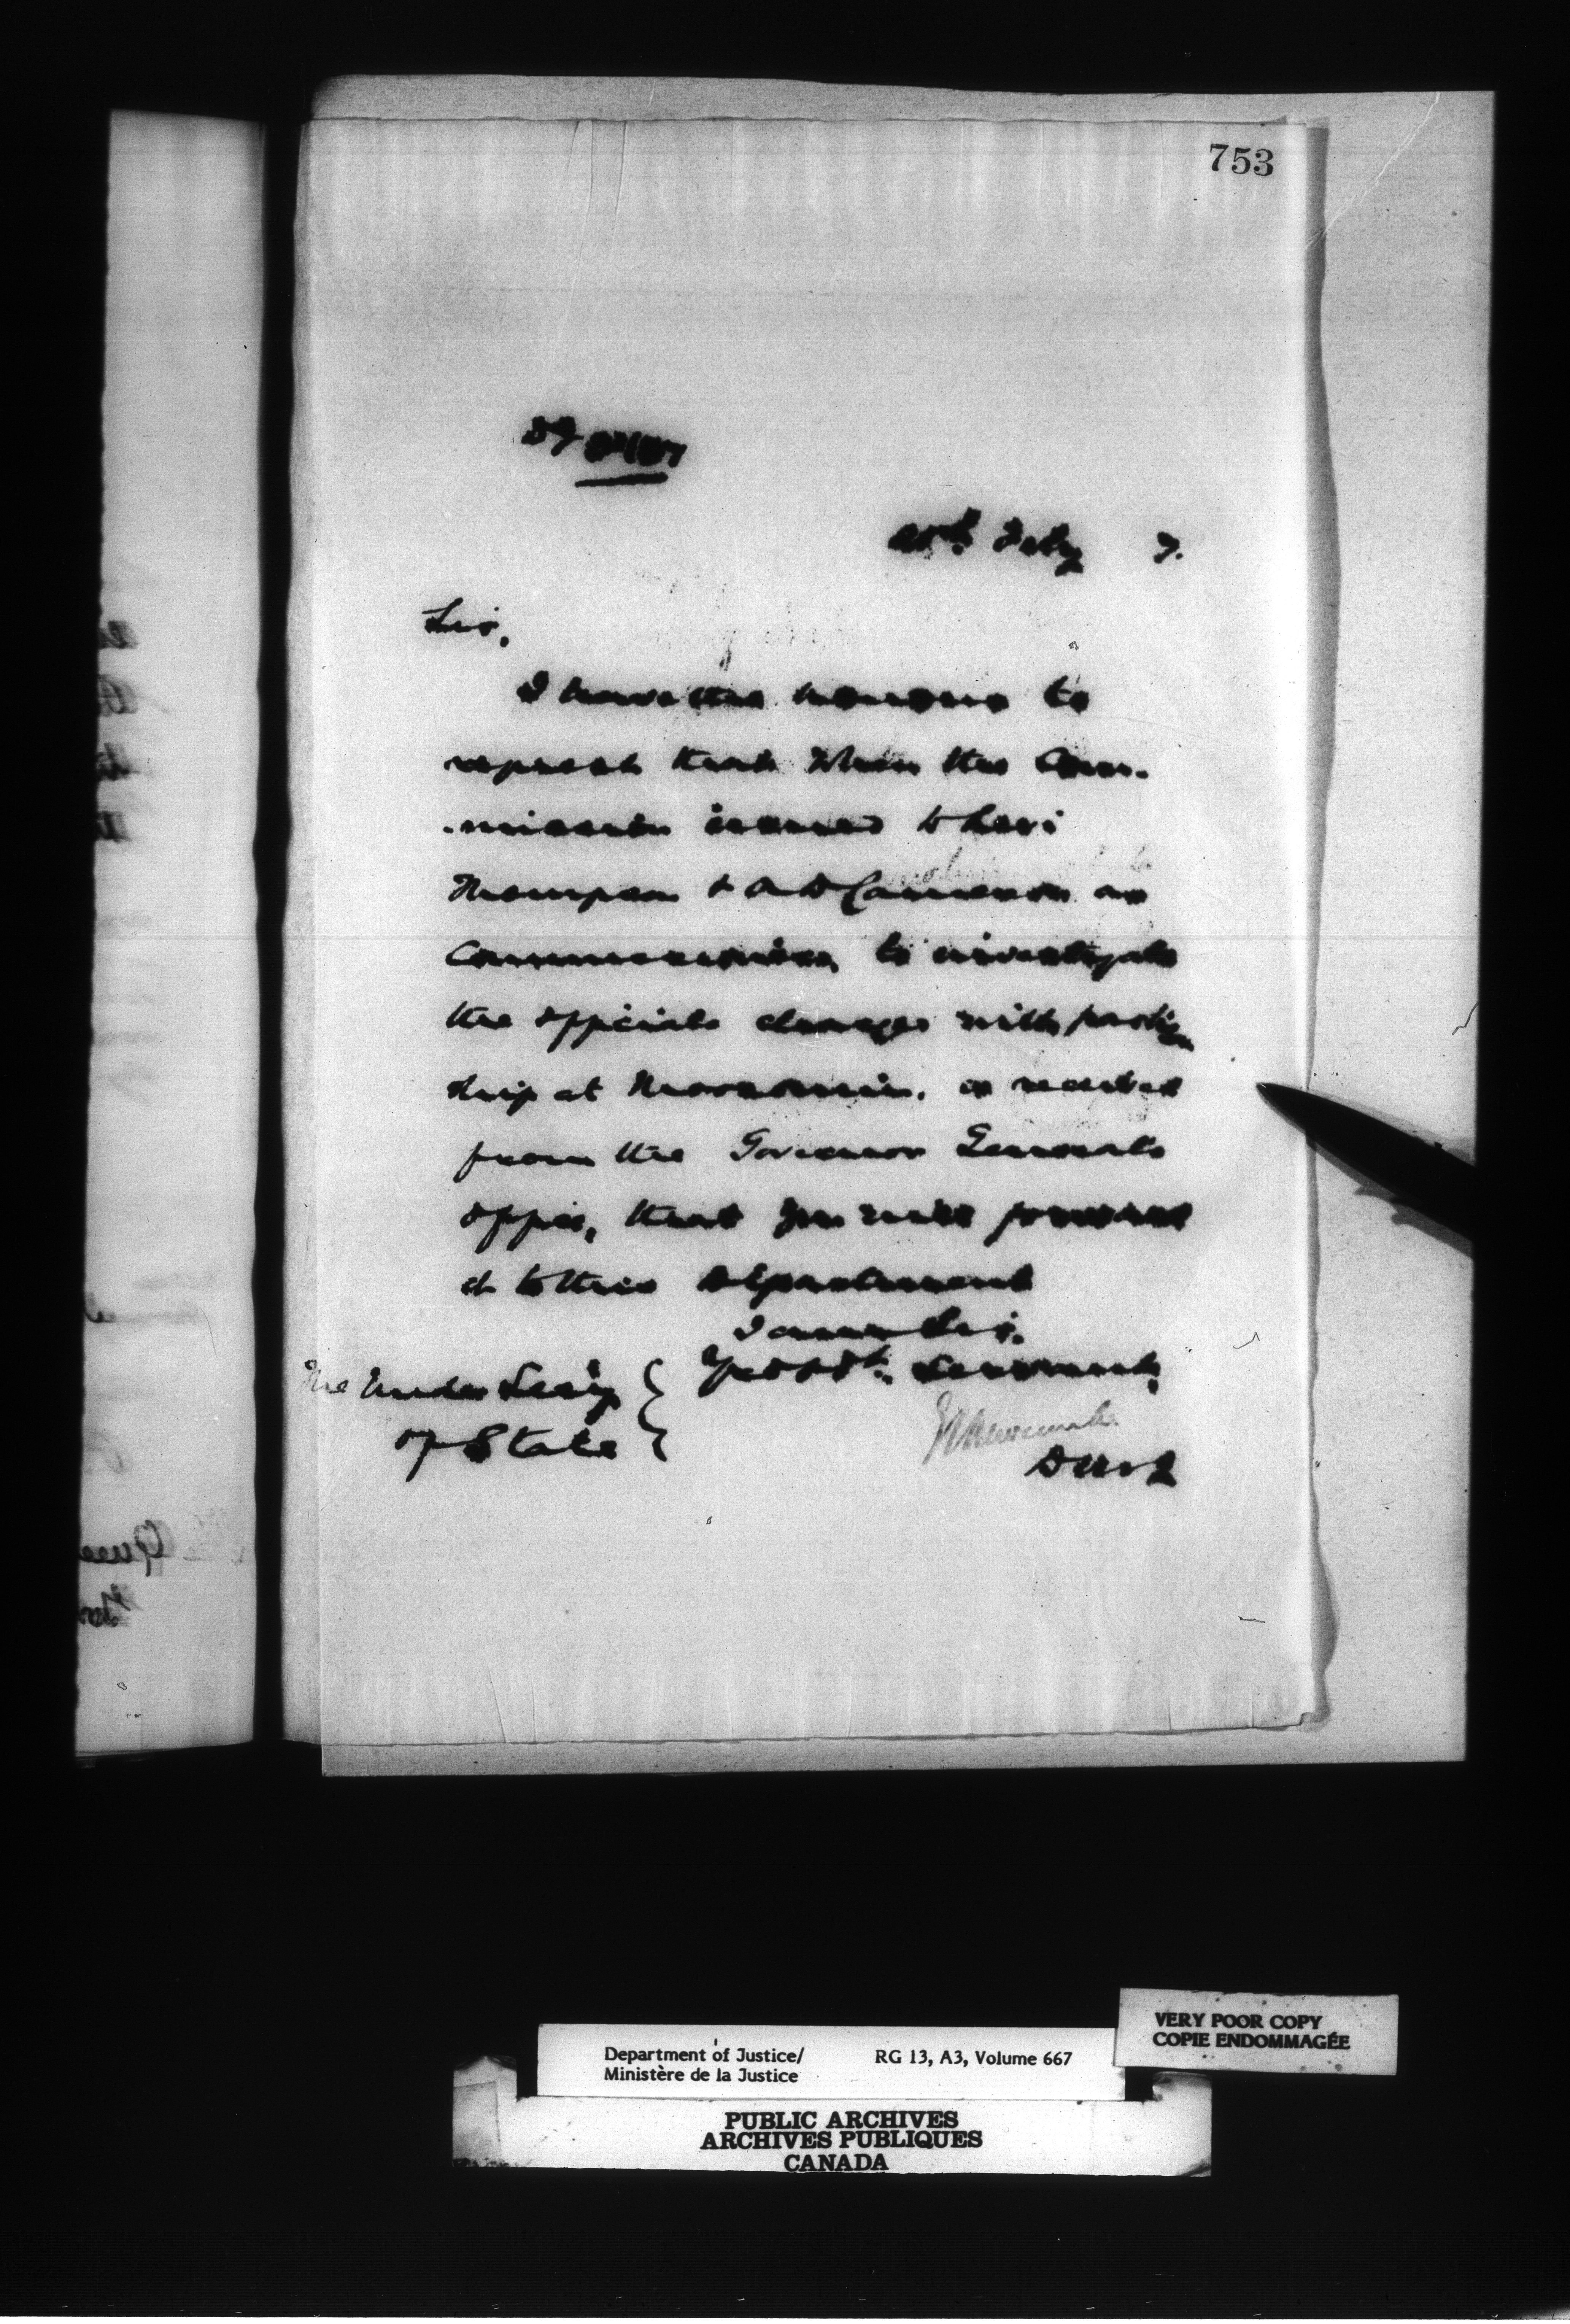 753
Feby 7.
Sir,
I have the honour to
request that when the Com-
-mission issued to Levi
Thompson & A D Cameron as
Commissioners, to investigate
the officials charged with partizan
ship at Moosomin, is received
from the Governor Generals
office, that you will forward
it to this Department
I am Sir,
Yr Obt. Servant,
The Under Secy
of State
E L Newcombe
D M of J
Department of Justice/
Ministère de la Justice
RG 13, A3, Volume 667
VERY POOR COPY
COPIE ENDOMMAGÉE
PUBLIC ARCHIVES
ARCHIVES PUBLIQUES
CANADA